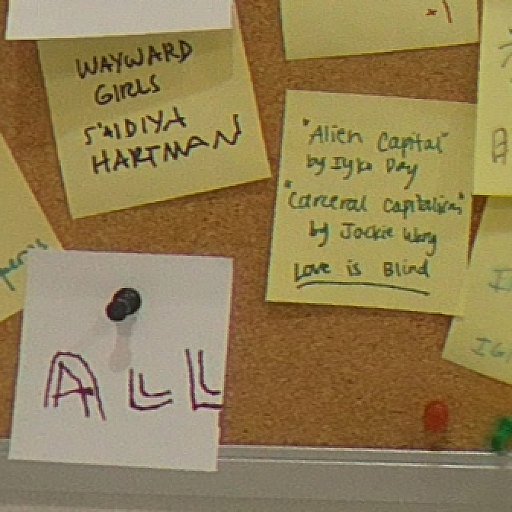 WAYWARD
GIRLS
S'AIDIYA
HARTMAN
"Alien Capital"
by Iyko Day
"Carceral Capitalism"
by Jackie Wang
Love is Blind
ALL